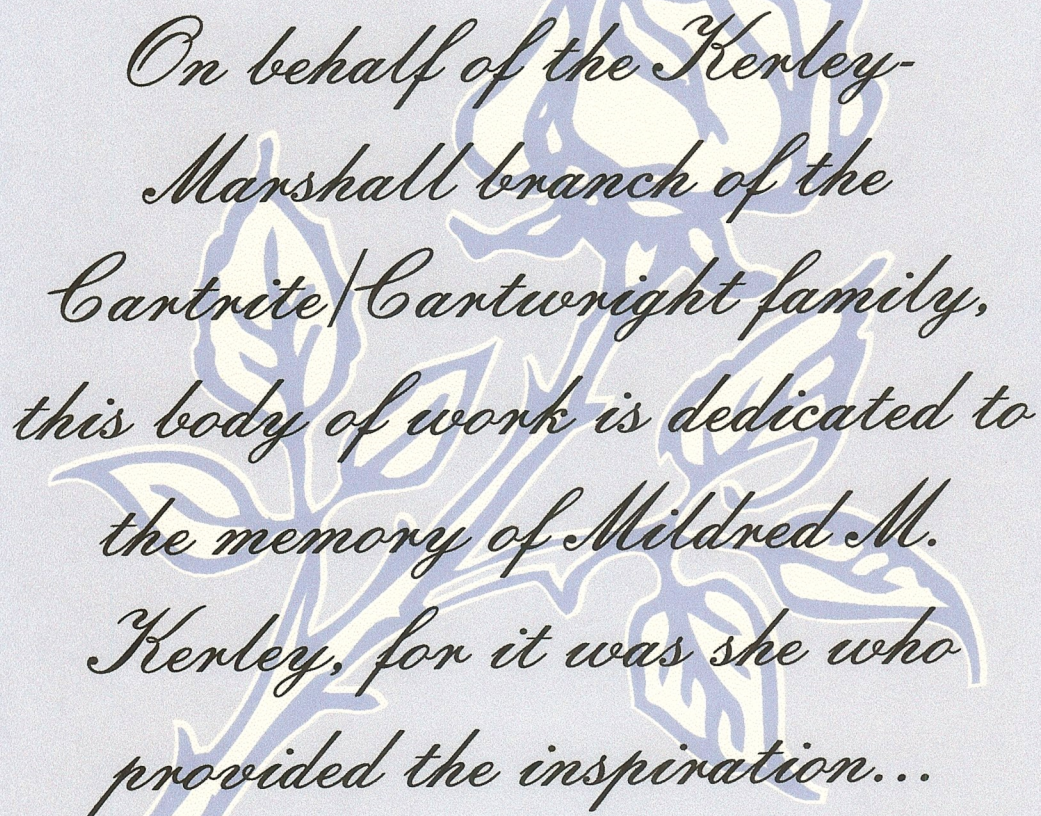 On behalf of the Kerley-
Marshall branch of the
Cartrite/Cartwright family,
this body of work is dedicated to
the memory of Mildred M.
Kerley, for it was she who
provided the inspiration...